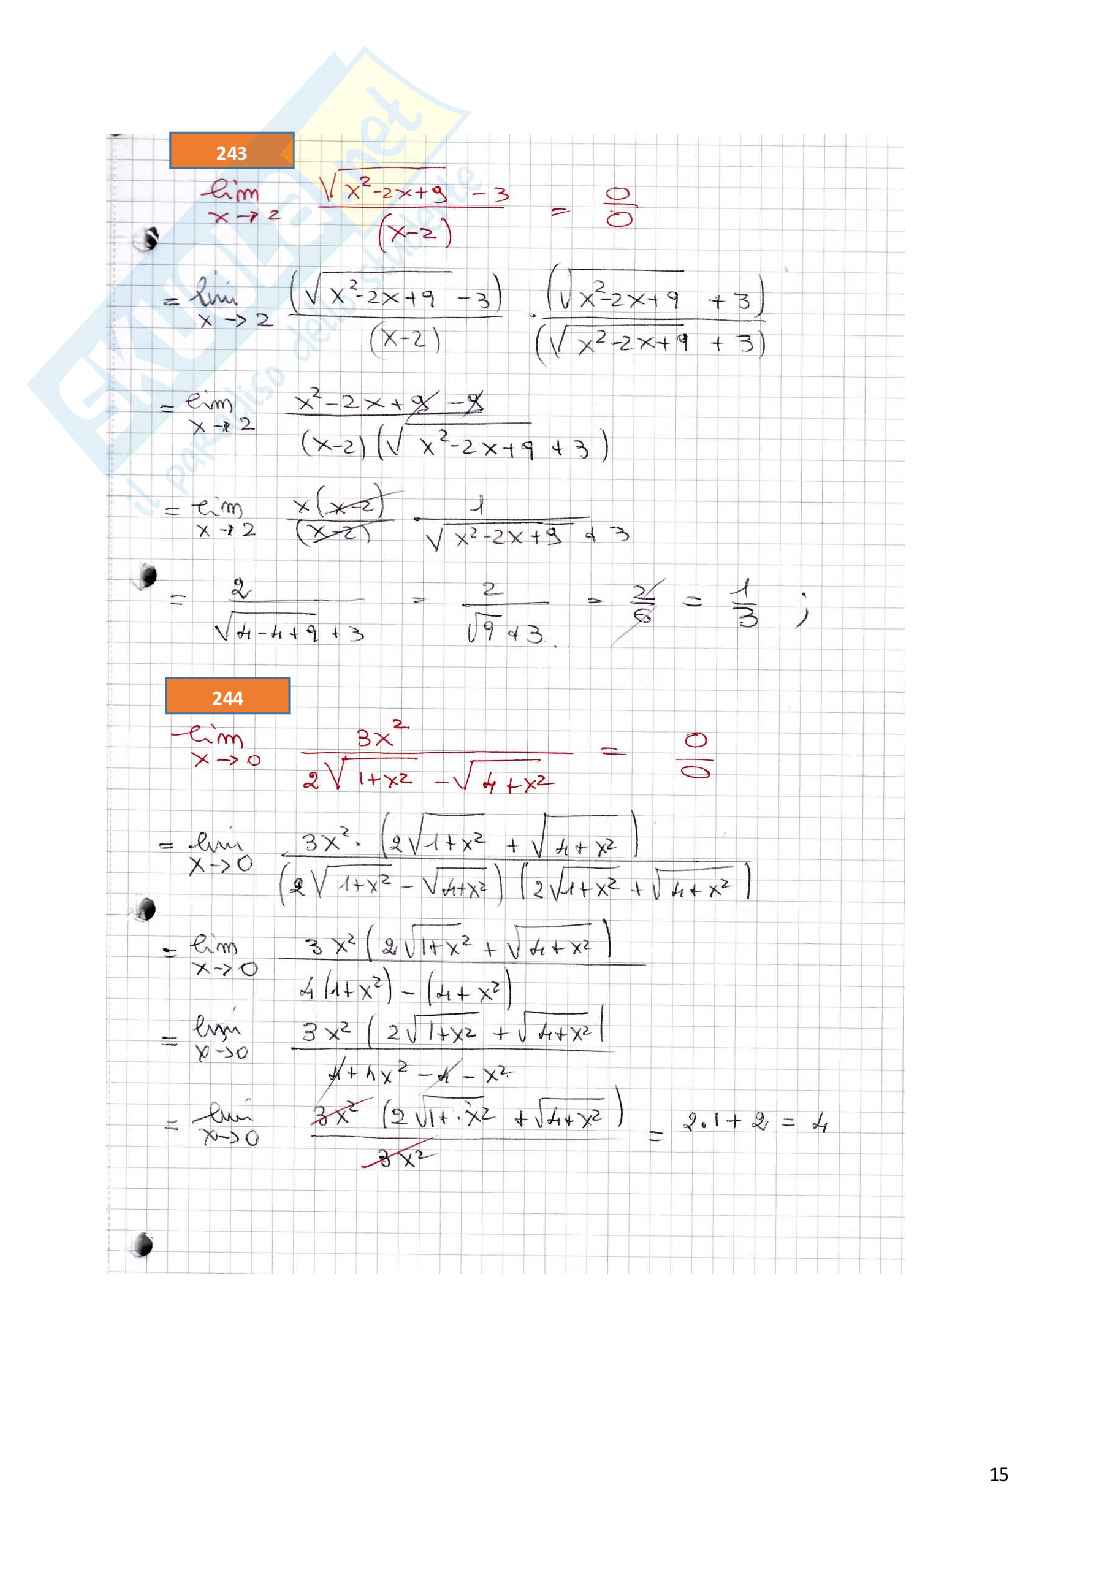 SKUOLA.net
il paradiso dello studente
243
lim x→2 (√(x²-2x+9) - 3)/(x-2) = 0/0
= lim x→2 (√(x²-2x+9) - 3)/(x-2) · (√(x²-2x+9) + 3)/(√(x²-2x+9) + 3)
= lim x→2 (x²-2x+9-9)/((x-2)(√(x²-2x+9) + 3))
= lim x→2 x(x-2)/(x-2) · 1/(√(x²-2x+9) + 3)
= 2/(√(4-4+9) + 3) = 2/(√9 + 3) = 2/6 = 1/3 ;
244
lim x→0 3x²/(2√(1+x²) - √(4+x²)) = 0/0
= lim x→0 3x² · (2√(1+x²) + √(4+x²))/((2√(1+x²) - √(4+x²)) (2√(1+x²) + √(4+x²)))
= lim x→0 3x² (2√(1+x²) + √(4+x²))/(4(1+x²) - (4+x²))
= lim x→0 3x² (2√(1+x²) + √(4+x²))/(4+4x²-4-x²)
= lim x→0 3x² (2√(1+x²) + √(4+x²))/(3x²) = 2·1+2 = 4
15